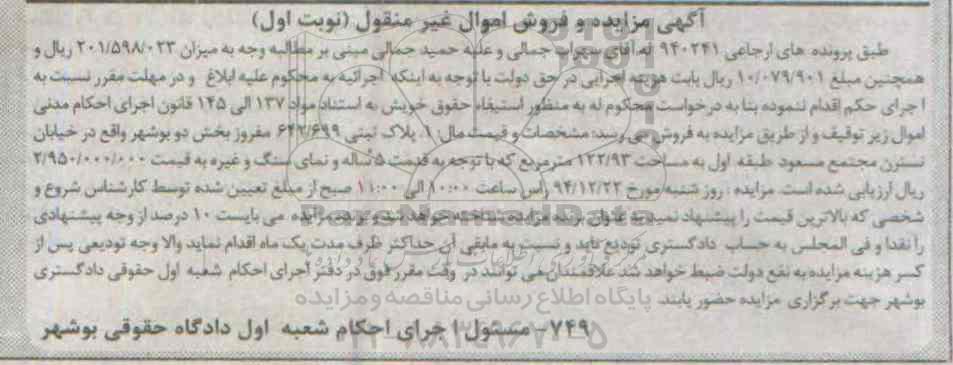 آگهی مزایده و فروش اموال غیر منقول (نوبت اول)
طبق پرونده های ارجاعی ۹۴۰۲۴۱ له آقای سهراب جمالی و علیه حمید جمالی مبنی بر مطالبه وجه به میزان ۲۰۱/۵۹۸/۰۲۳ ریال و
همچنین مبلغ ۱۰/۰۷۹/۹۰۱ ریال بابت هزینه اجرایی در حق دولت با توجه به اینکه اجرائیه به محکوم علیه ابلاغ و در مهلت مقرر نسبت به
اجرای حکم اقدام ننموده بنا به درخواست محکوم له به منظور استیفاء حقوق خویش به استناد مواد ۱۳۷ الی ۱۴۵ قانون اجرای احکام مدنی
اموال زیر توقیف و از طریق مزایده به فروش می رسد: مشخصات و قیمت مال: ۱. پلاک ثبتی ۶۴۲/۶۹۹ مفروز بخش دو بوشهر واقع در خیابان
نسترن مجتمع مسعود طبقه اول به مساحت ۱۲۲/۹۳ متر مربع که با توجه به قدمت ۵ ساله و نمای سنگ و غیره به قیمت ۲/۹۵۰/۰۰۰/۰۰۰
ریال ارزیابی شده است. مزایده : روز شنبه مورخ ۹۴/۱۲/۲۲ راس ساعت ۱۰:۰۰ الی ۱۱:۰۰ صبح از مبلغ تعیین شده توسط کارشناس شروع و
شخصی که بالاترین قیمت را پیشنهاد نمید به عنوان برنده مزایده شناخته خواهد شد و برنده مزایده می بایست ۱۰ درصد از وجه پیشنهادی
را نقدا و فی المجلس به حساب دادگستری تودیع ناید و نسبت به مابقی آن حداکثر ظرف مدت یک ماه اقدام نماید والا وجه تودیعی پس از
کسر هزینه مزایده به نفع دولت ضبط خواهد شد علاقمندان می توانند در وقت مقرر فوق در دفتر اجرای احکام شعبه اول حقوقی دادگستری
بوشهر جهت برگزاری مزایده حضور یابند.
پایگاه اطلاع رسانی مناقصه و مزایده
۷۴۹- مسئول اجرای احکام شعبه اول دادگاه حقوقی بوشهر